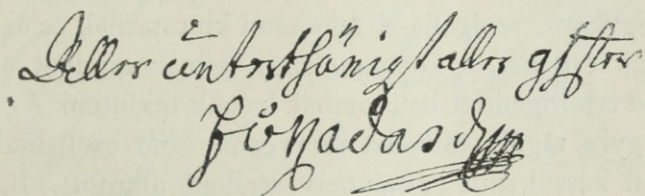 Aller unterthänigst aller ghster
Nadasdy